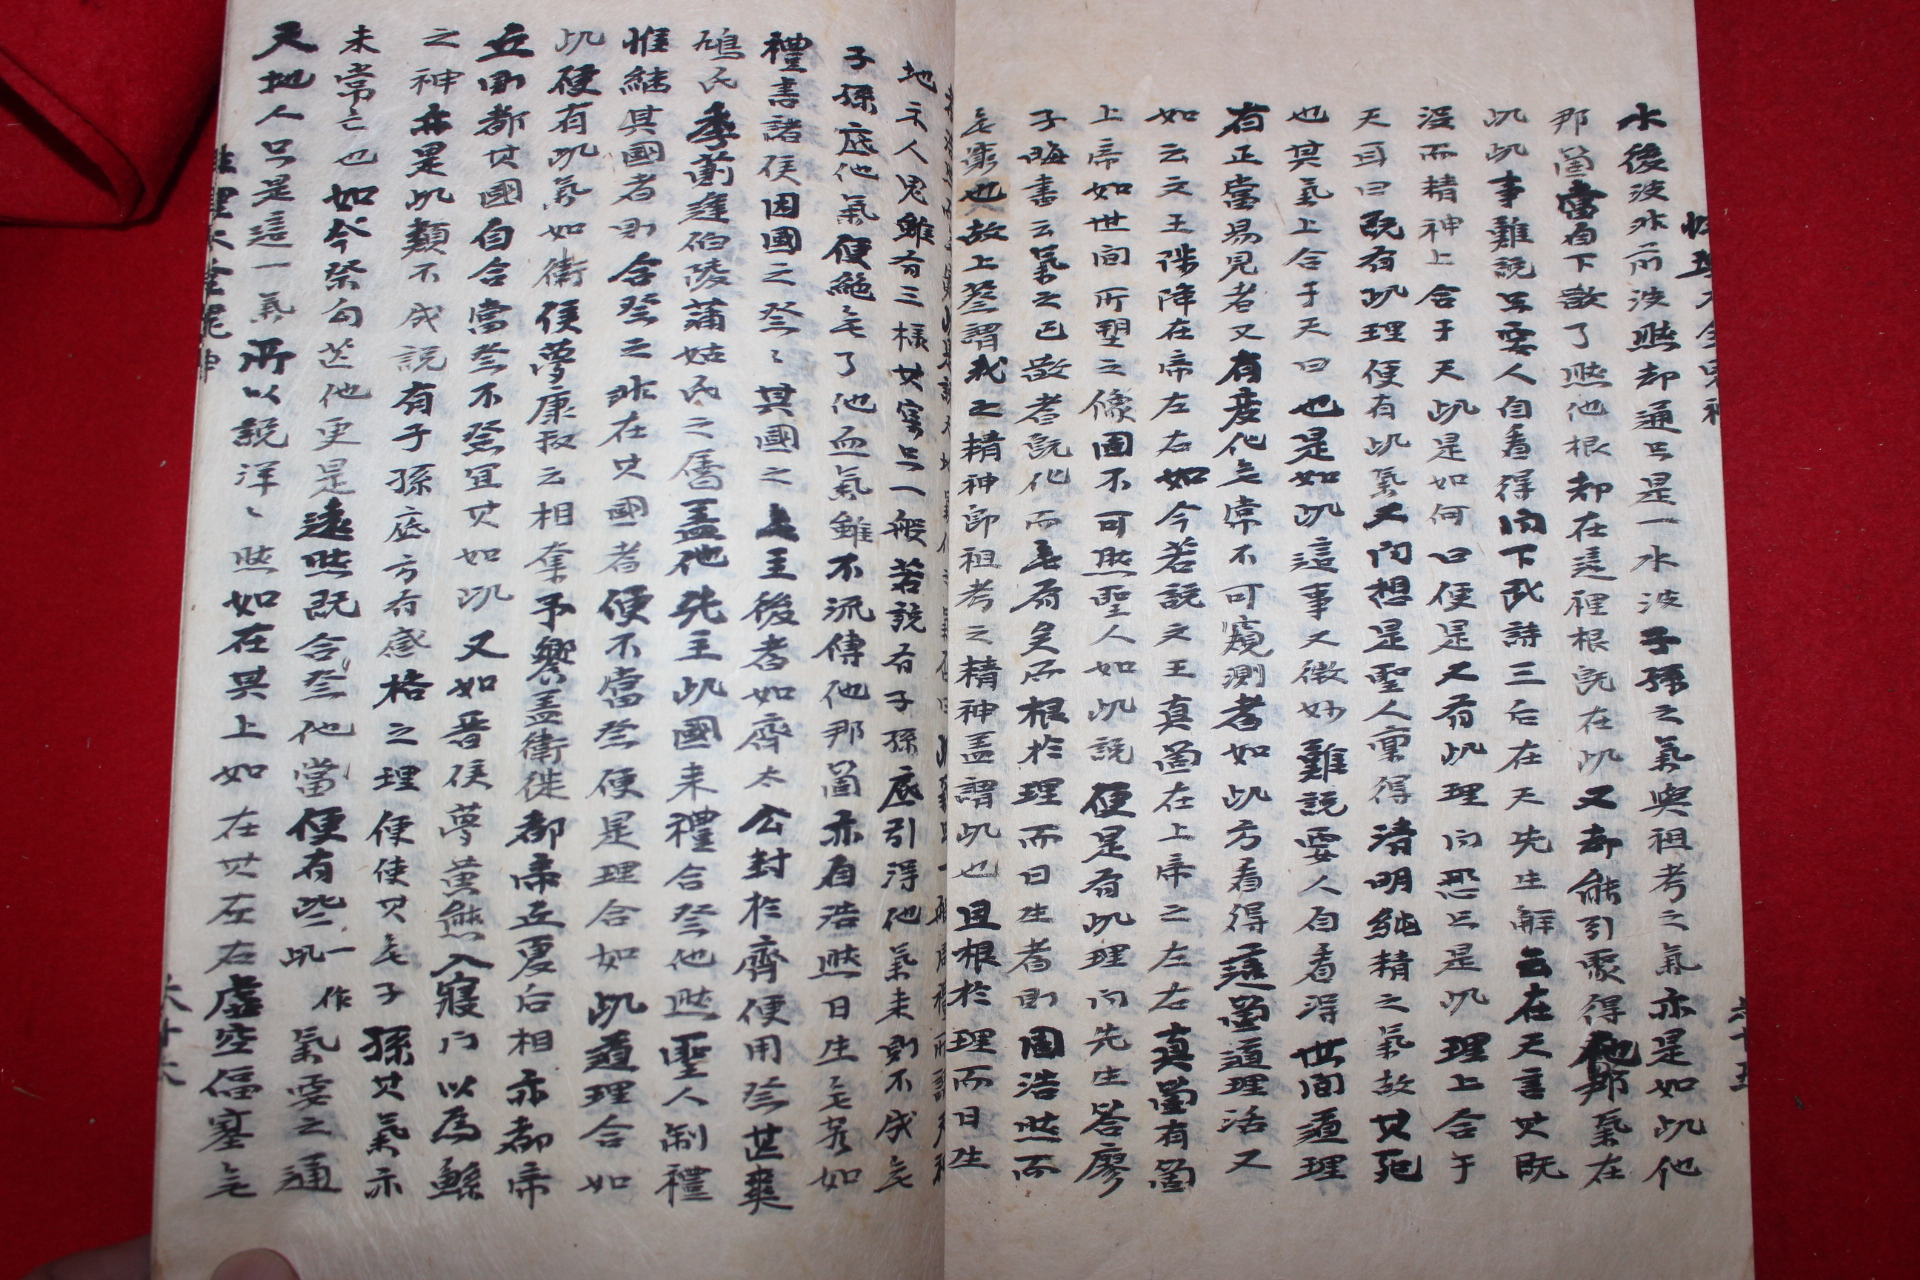 水後波非前波然却通只是一水波子孫之氣與祖考之氣亦是如此他
那箇當自下散了然他根却在這裡根既在此又却能引聚得他那氣在
此此事難說只要人自看得問下武詩三后在天先生解云在天言其既
沒而精神上合于天此是如何曰便是又有此理問恐只是此理上合于
天耳曰既有此理便有此氣又問想是聖人稟得清明純精之氣故其死
也其氣上合于天曰也是如此這事又微妙難說要人自看得世間道理
有正當易見者又有変化无常不可窺測者如此方看得這箇道理活又
如云文王陟降在帝左右如今若說文王真箇在上帝之左右真箇有箇
上帝如世間所塑之像固不可然聖人如此說便是有此理問先生答廖
子晦書云氣之已散者既化而无有矣而根於理而日生者則固浩然而
无窮也故上蔡謂我之精神卽祖考之精神盖謂此也且根於理而日生
地示人鬼雖有三樣其実只一般若說有子孫底引淂他氣来則不成无
子孫底他氣便絶无了他血氣雖不流傳他那箇亦自浩然日生无若如
禮書諸侯因國之祭〻其國之无主後者如齊太公封於齊便用祭甚爽
鳩氏季萴逢伯陵蒲姑氏之屬盖他先主此國来禮合祭他然聖人制禮
惟継其國者則合祭之非在其國者便不當祭便是理合如此道理合如
此便有此氣如衛侯夢康叔云相奪予饗盖衛徙都帝丘夏后相亦都帝
丘則都其國自合當祭不祭宜其如此又如晋侯夢黃熊入寢门以為鯀
之神亦是此類不成說有子孫底方有感格之理便使其无子孫其氣亦
未甞亡也如今祭勾芒他更是遠然既合祭他當便有些此一作氣要之通
天地人只是這一氣所以說洋〻然如在其上如在其左右虛空偪塞无